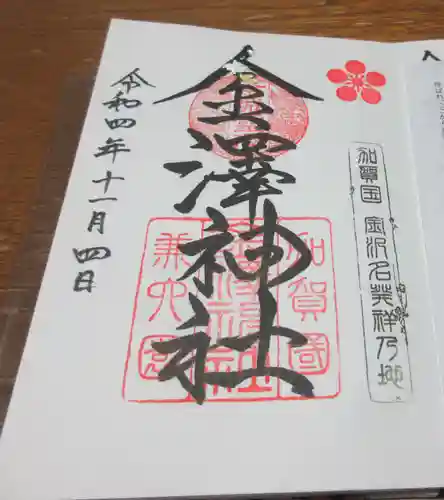 加賀国 金沢名発祥乃地
金澤神社
加賀國
兼六園
令和四年十一月四日